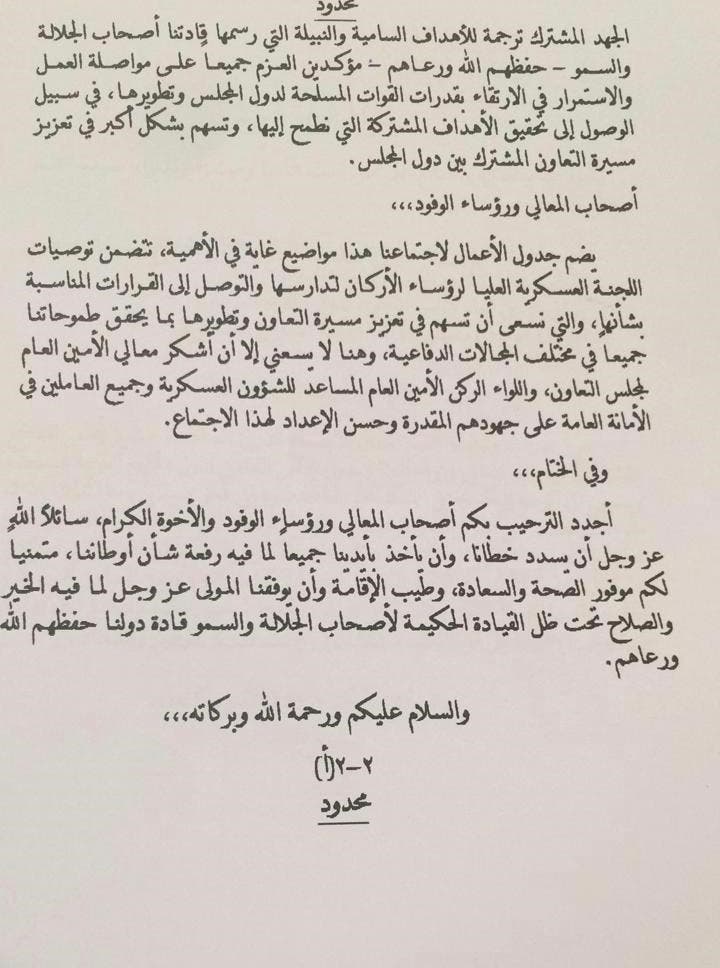 محدود
الجهد المشترك ترجمة للأهداف السامية والنبيلة التي رسمها قادتنا أصحاب الجلالة
والسمو – حفظهم الله ورعاهم – مؤكدين العزم جميعاً على مواصلة العمل
والاستمرار في الارتقاء بقدرات القوات المسلحة لدول المجلس وتطويرها، في سبيل
الوصول إلى تحقيق الأهداف المشتركة التي نطمح إليها، وتسهم بشكل أكبر في تعزيز
مسيرة التعاون المشترك بين دول المجلس.
أصحاب المعالي ورؤساء الوفود،،،
يضم جدول الأعمال لاجتماعنا هذا مواضيع غاية في الأهمية، تتضمن توصيات
اللجنة العسكرية العليا لرؤساء الأركان لتدارسها والتوصل إلى القرارات المناسبة
بشأنها، والتي نسعى أن تسهم في تعزيز مسيرة التعاون وتطويرها بما يحقق طموحاتنا
جميعاً في مختلف المجالات الدفاعية، وهنا لا يسعني إلا أن أشكر معالي الأمين العام
لمجلس التعاون، واللواء الركن الأمين العام المساعد للشؤون العسكرية وجميع العاملين في
الأمانة العامة على جهودهم المقدرة وحسن الإعداد لهذا الاجتماع.
وفي الختام،،،
أجدد الترحيب بكم أصحاب المعالي ورؤساء الوفود والأخوة الكرام، سائلاً الله
عز وجل أن يسدد خطانا، وأن يأخذ بأيدينا جميعاً لما فيه رفعة شأن أوطاننا، متمنياً
لكم موفور الصحة والسعادة، وطيب الإقامة وأن يوفقنا المولى عز وجل لما فيه الخير
والصلاح تحت ظل القيادة الحكيمة لأصحاب الجلالة والسمو قادة دولنا حفظهم الله
ورعاهم.
والسلام عليكم ورحمة الله وبركاته،،،
٢–٢(أ)
محدود